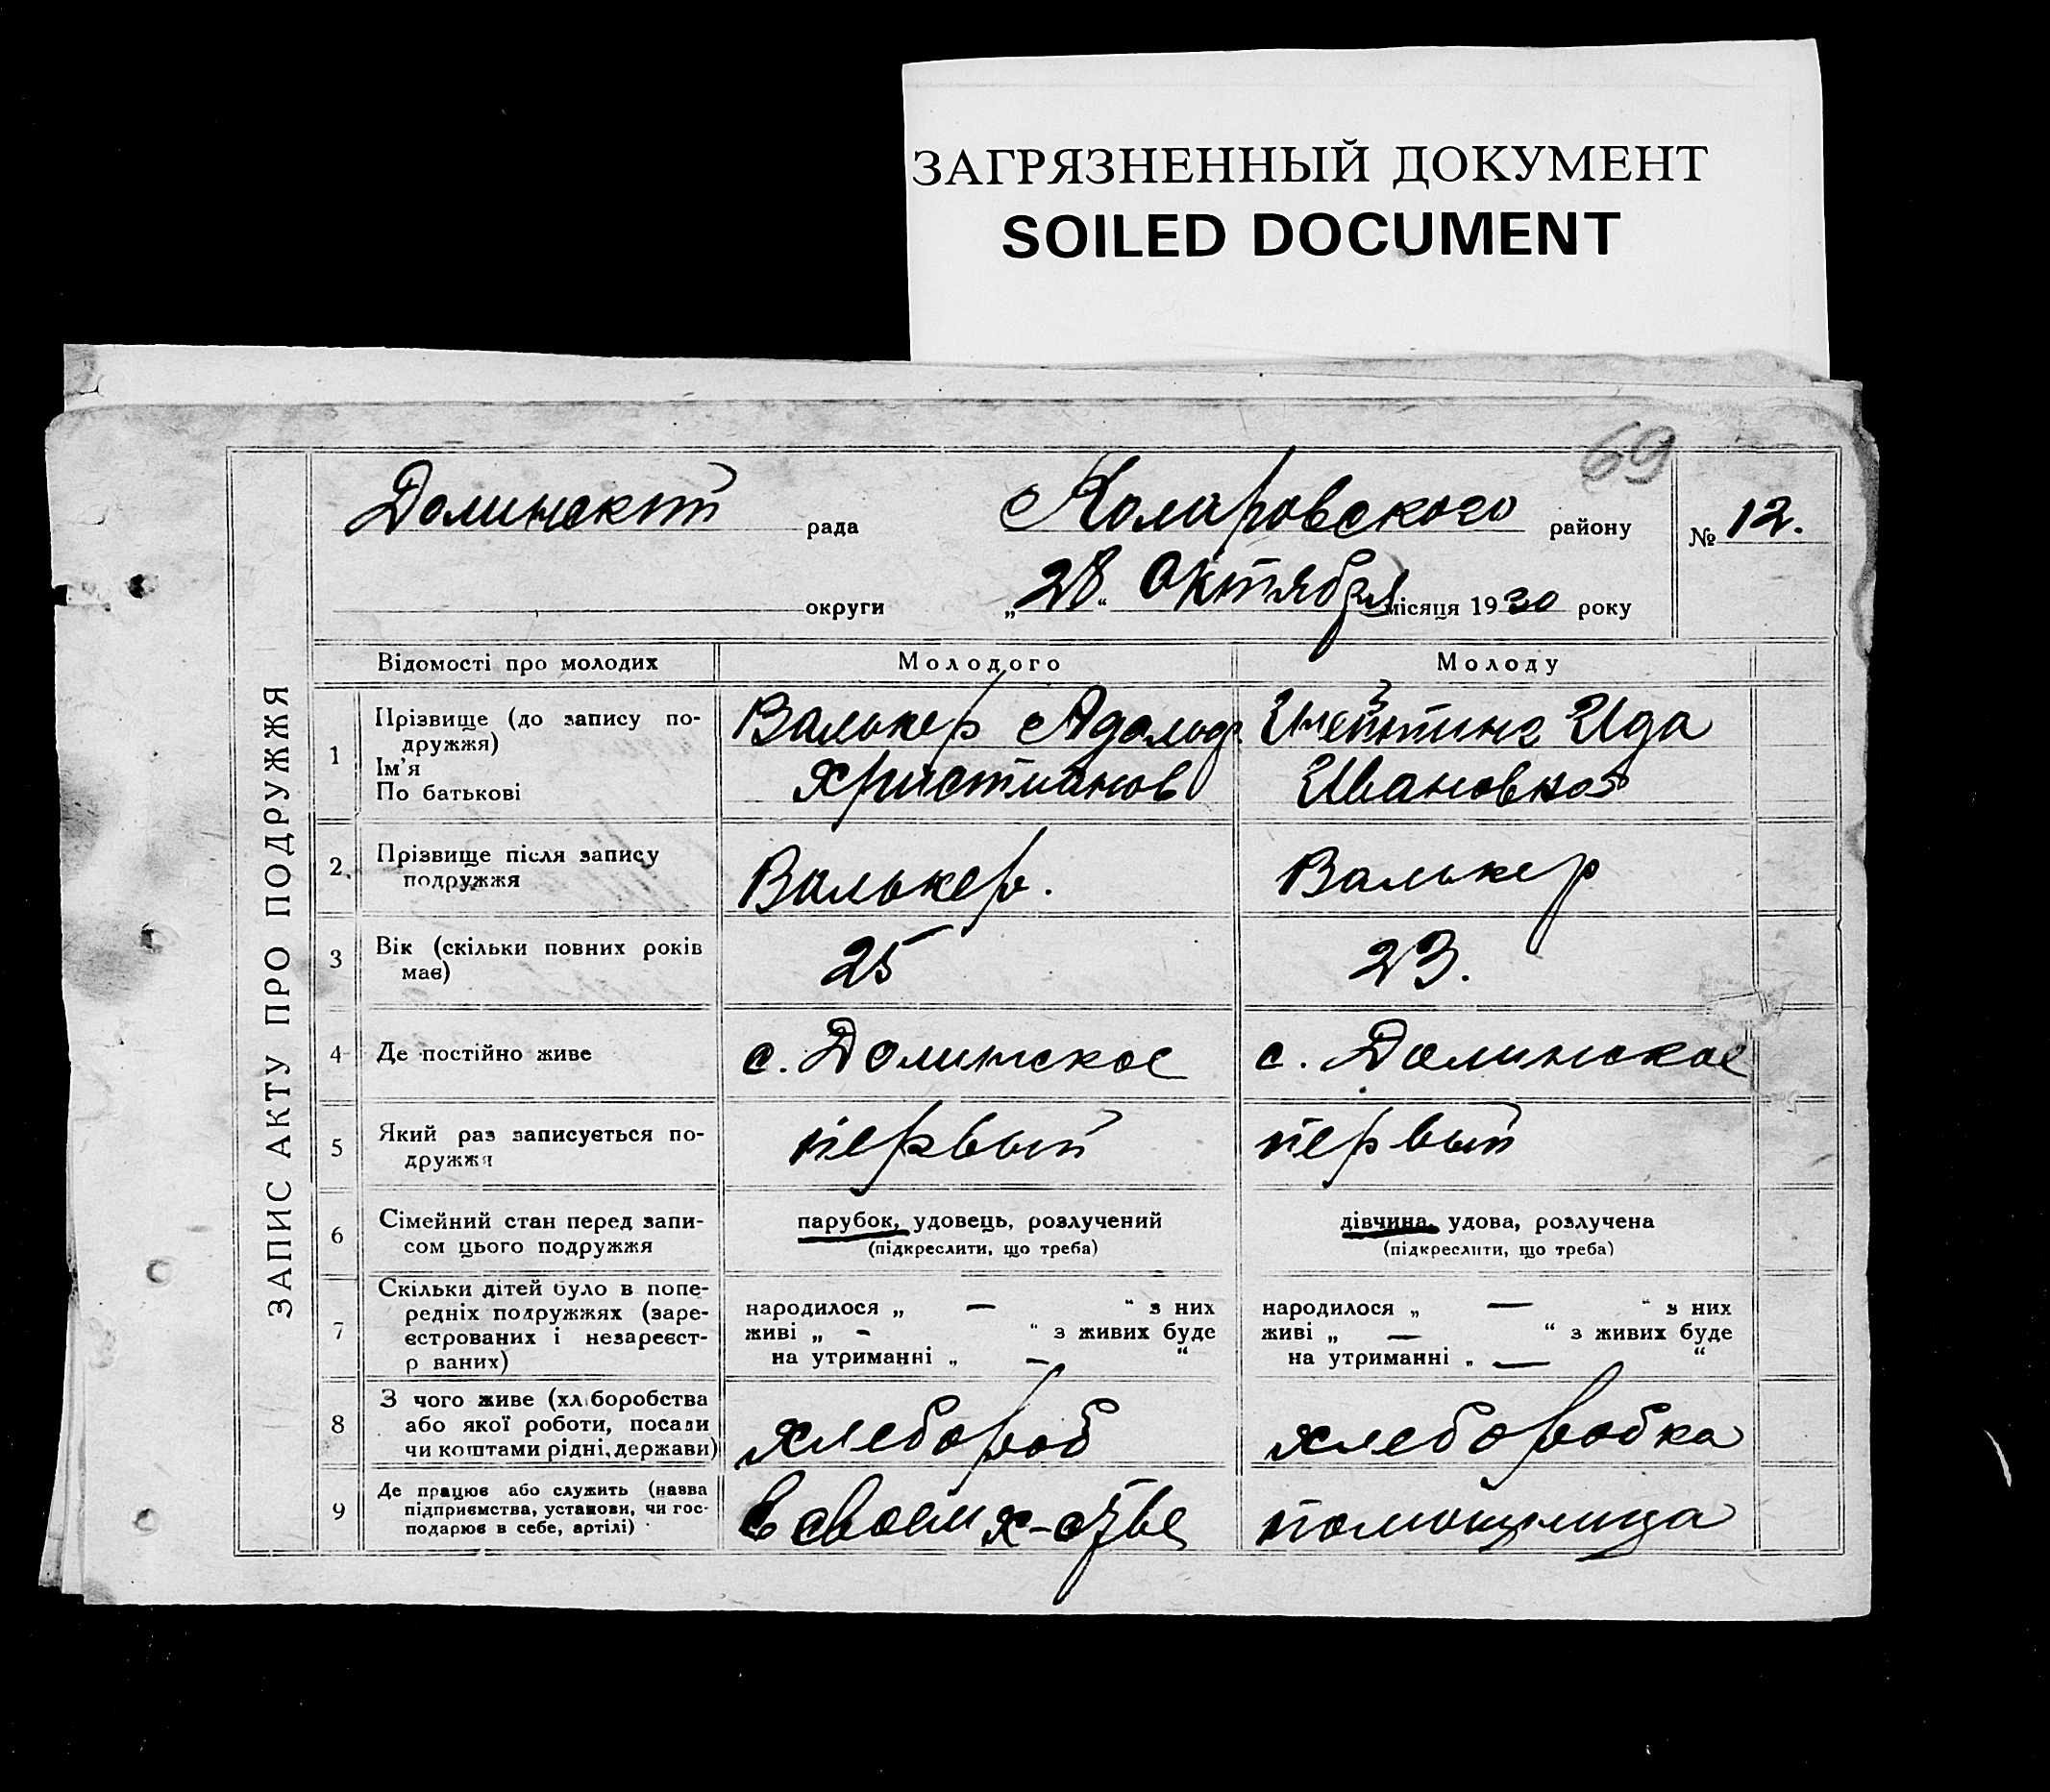 ЗАГРЯЗНЕННЫЙ ДОКУМЕНТ
SOILED DOCUMENT
69
Долинский рада Коларовского району № 12.
округи „28“ Октября місяця 1930 року
ЗАПИС АКТУ ПРО ПОДРУЖЖЯ
Відомості про молодих Молодого Молоду
1 Прізвище (до запису по-
дружжя)
Ім'я
По батькові
Валькер Адольф
Христианов
Ида
Ивановна
2. Прізвище після запису
подружжя
Валькер.
Валькер
3 Вік (скільки повних років
має)
25
23.
4 Де постійно живе
с. Долинское
с. Долинское
5 Який раз записується по-
дружжя
первый
первый
6 Сімейний стан перед запи-
сом цього подружжя
парубок, удовець, розлучений
(підкреслити, що треба)
дівчина, удова, розлучена
(підкреслити, що треба)
7 Скільки дітей було в попе-
редніх подружжях (заре-
єстрованих і незареєст-
р ваних)
народилося „ — “ з них
живі „ - “ з живих буде
на утриманні „ — “
народилося „ — “ з них
живі „ — “ з живих буде
на утриманні „ — “
8 З чого живе (хліборобства
або якої роботи, посади
чи коштами рідні, держави)
хлебороб
хлеборобка
9 Де працює або служить (назва
підприємства, установи, чи гос-
подарює в себе, артілі)
в своем х-стве
помощница